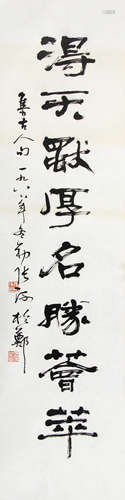 得天独厚名胜荟萃
集古人句一九八六年冬勒张海於郑